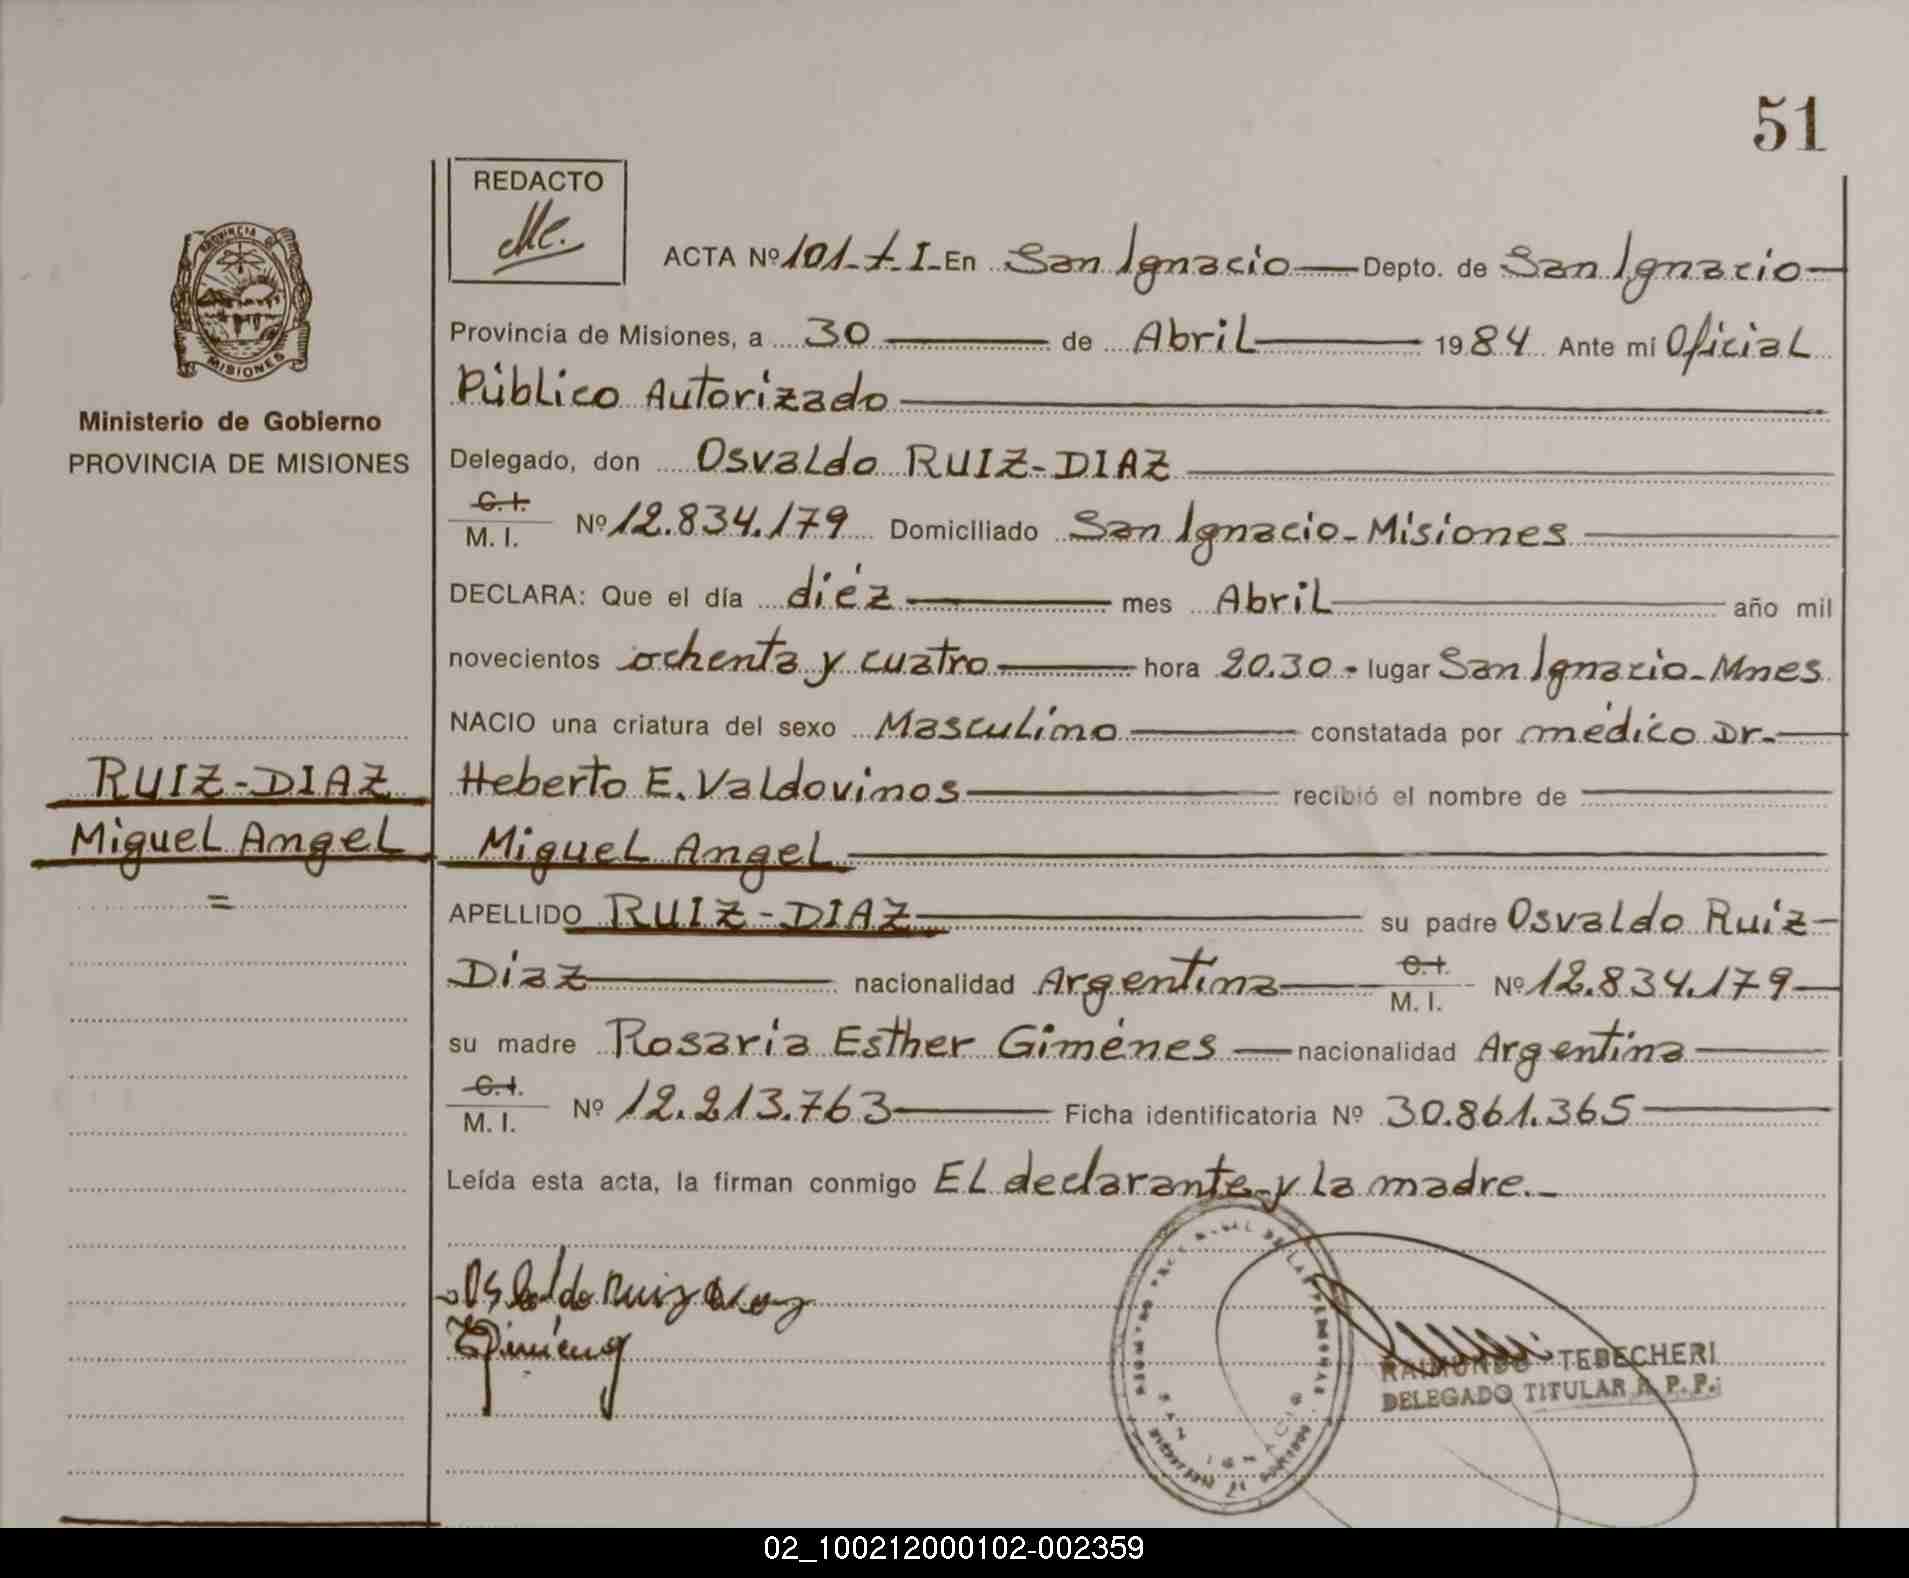 51
REDACTO
PROVINCIA DE
MISIONES
Ministerio de Gobierno
PROVINCIA DE MISIONES
ACTA Nº 101-t-I- En San Ignacio Depto. de San Ignacio
Provincia de Misiones, a 30 de Abril 1984 Ante mi Oficial
Público Autorizado
Delegado, don Osvaldo RUIZ-DIAZ
C. I.
M. I. Nº 12.834.179 Domiciliado San Ignacio-Misiones
DECLARA: Que el día diéz mes Abril año mil
novecientos ochenta y cuatro hora 20.30- lugar San Ignacio-Mnes
NACIO una criatura del sexo Masculino constatada por médico Dr.
Heberto E. Valdovinos recibió el nombre de
Miguel Angel
RUIZ-DIAZ
Miguel Angel
=
APELLIDO RUIZ-DIAZ su padre Osvaldo Ruiz-
Diaz nacionalidad Argentina C. I.
M. I. Nº 12.834.179
su madre Rosaria Esther Giménes nacionalidad Argentina
C. I.
M. I. Nº 12.213.763 Ficha identificatoria Nº 30.861.365
Leída esta acta, la firman conmigo El declarante y la madre.-
SAN IGNACIO
RAIMUNDO TEBECHERI
DELEGADO TITULAR R. P. P.
02_100212000102-002359